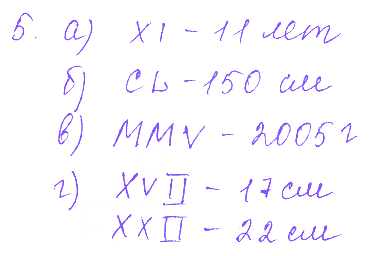 5. а) XI - 11 лет
б) CL - 150 см
в) MMV - 2005 г
г) XVII - 17 см
XXII - 22 см